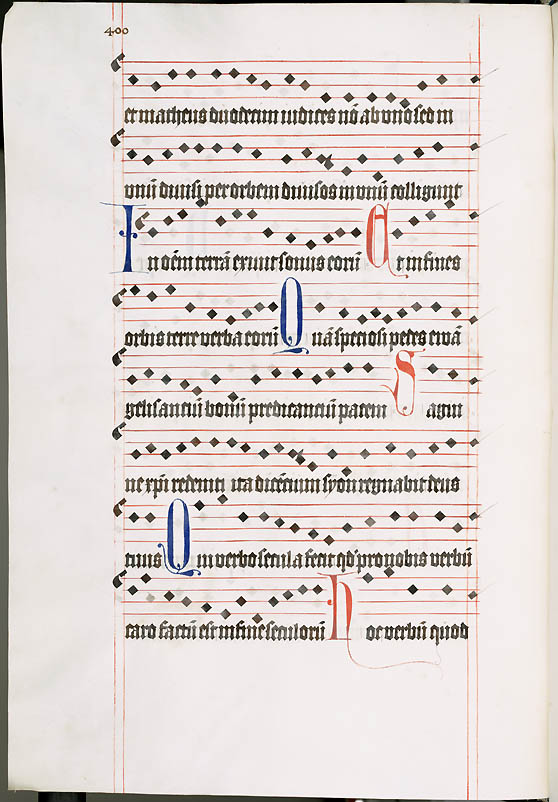 400
et matheus duodecim iudices nō ab vno sed in
vnū diuisi per orbem diuisos in vnū colligunt
In oēm terrā exiuit sonus eorū Et in fines
orbis terre verba eorū Quā speciosi pedes ewā
gelisanciū bonū predicanciū pacem Sagui
ne xp̄i redempti ita dicencium syon regnabit deus
tuus Qui in verbo secula fecit qd' pro nobis verbū
caro factū est in fine seculorū Hoc verbū quod